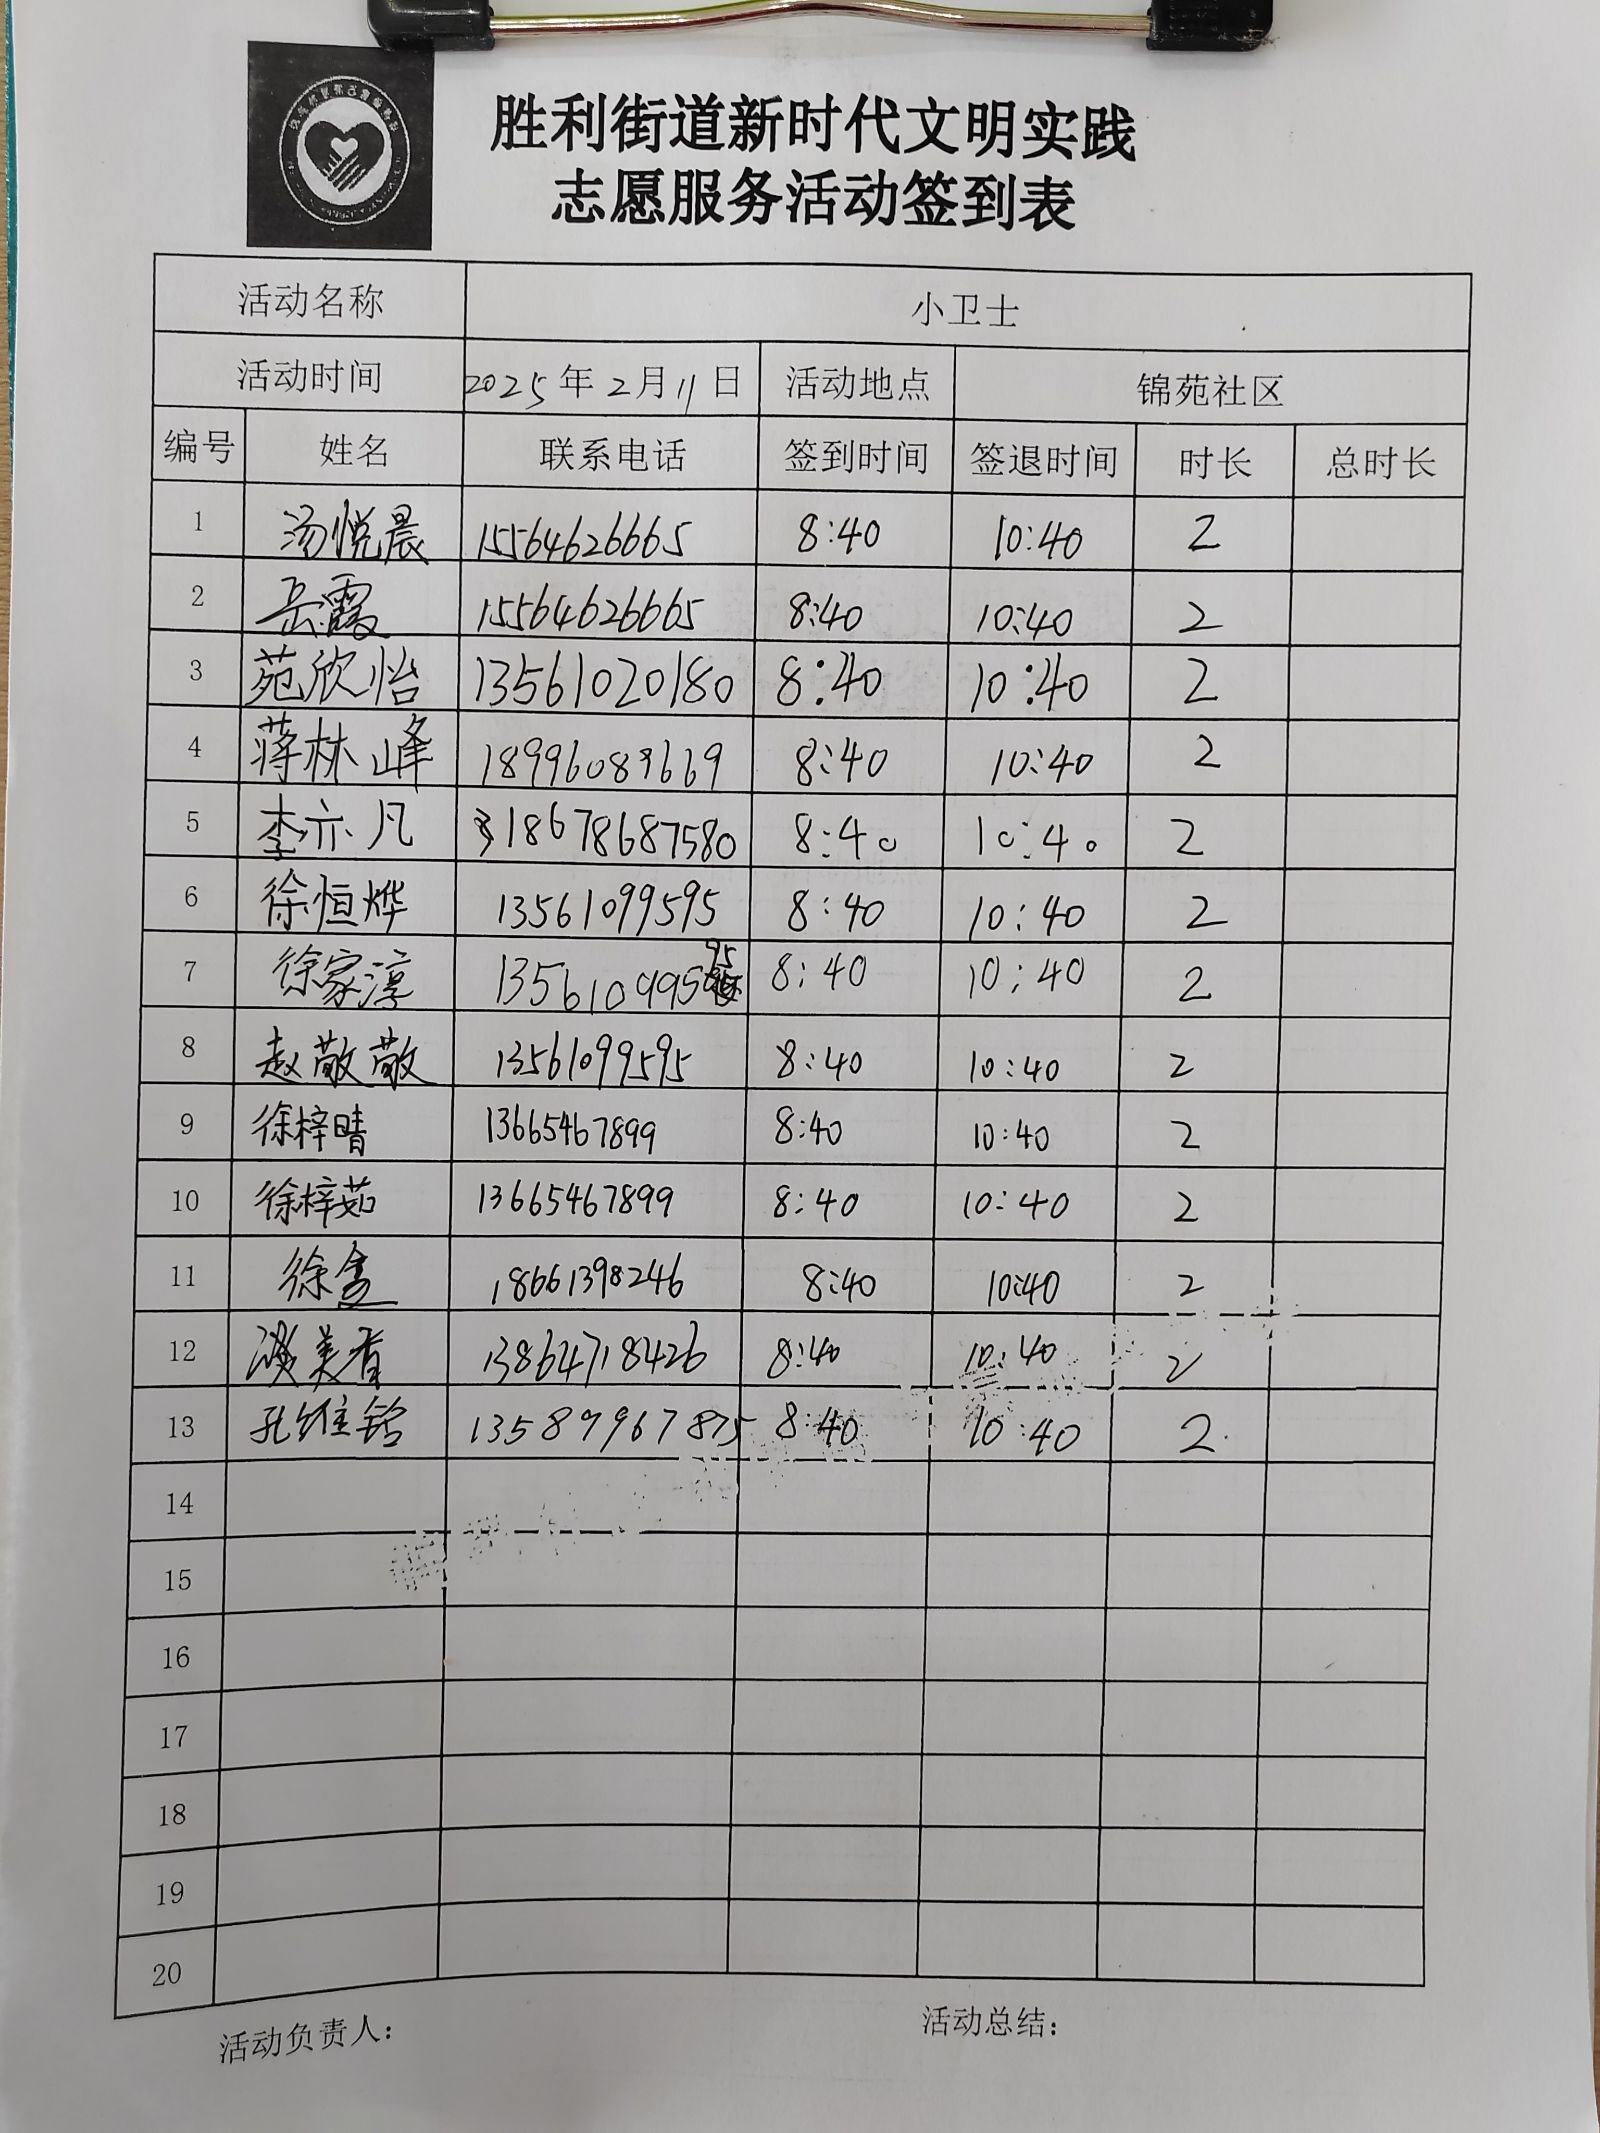 胜利街道新时代文明实践
志愿服务活动签到表
活动名称 小卫士
活动时间 2025年2月11日 活动地点 锦苑社区
编号 姓名 联系电话 签到时间 签退时间 时长 总时长
1 汤悦晨 15564626665 8:40 10:40 2
2 岳霞 15564626665 8:40 10:40 2
3 苑欣怡 13561020180 8:40 10:40 2
4 蒋林峰 18996083669 8:40 10:40 2
5 李亦凡 18678687580 8:40 10:40 2
6 徐恒烨 13561099595 8:40 10:40 2
7 徐家淳 13561099595 8:40 10:40 2
8 赵敬敬 13561099595 8:40 10:40 2
9 徐梓晴 13665467899 8:40 10:40 2
10 徐梓茹 13665467899 8:40 10:40 2
11 徐 18661398246 8:40 10:40 2
12 美香 13864718426 8:40 10:40 2
13 孔维铭 13587967875 8:40 10:40 2
14
15
16
17
18
19
20
活动负责人: 活动总结: